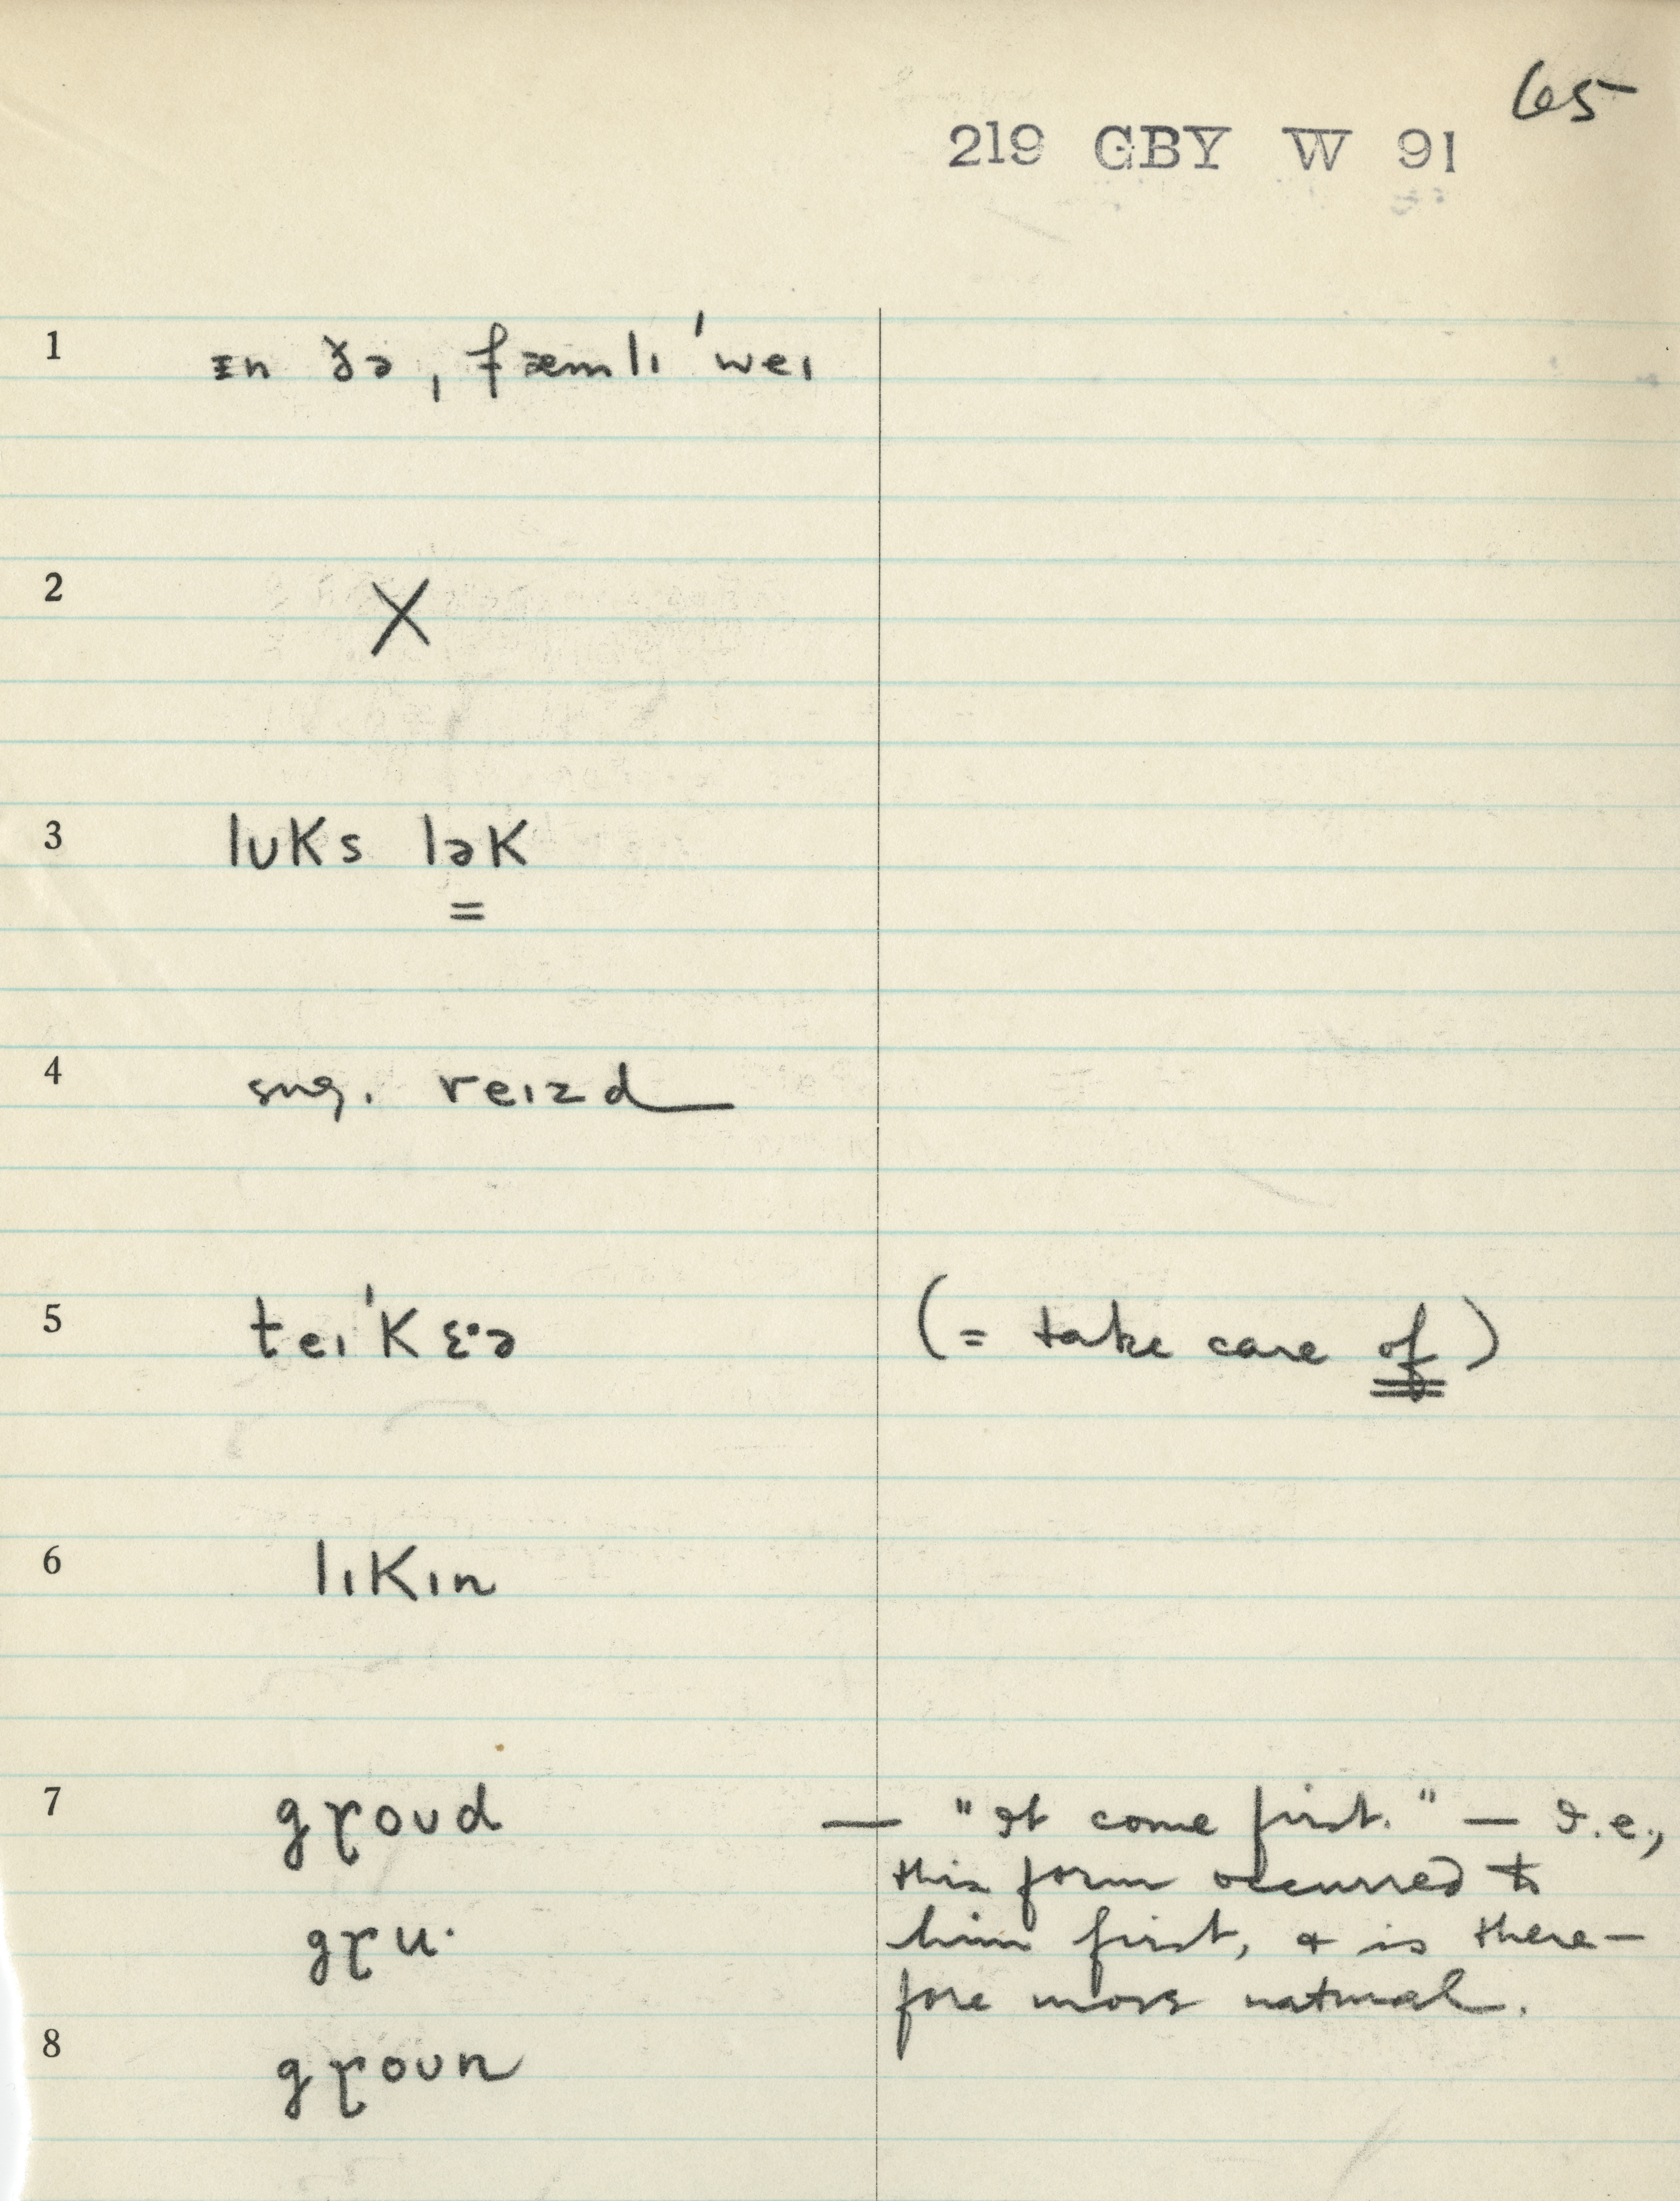 65
219 GBY W 91
1 ɪn ðə ˌfæmlɪ ˈweɪ
2 X
3 lʊks lək
=
4 sug. reɪzd
5 teɪˈkɛ·ə (= take care of)
6 lɪkɪn
7 gɼoʊd — "It come first." — I.e.,
this form occurred to
gɼu· him first, & is there-
fore more natural.
8 gɼoʊn